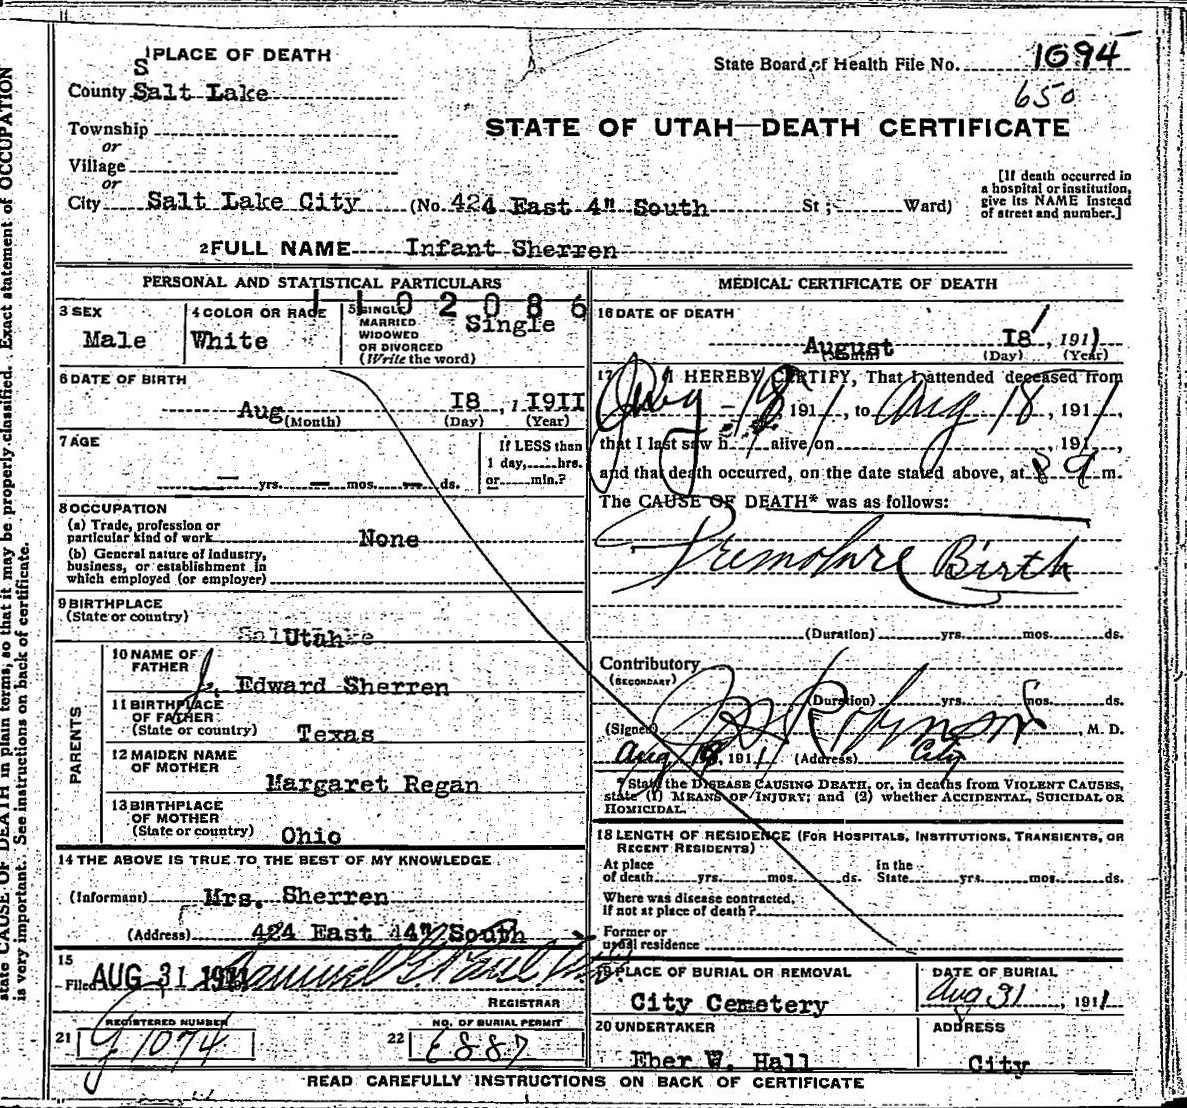 1 PLACE OF DEATH
State Board of Health File No. 1694
650
County Salt Lake
STATE OF UTAH—DEATH CERTIFICATE
Township
or
Village
or
[If death occurred in
a hospital or institution,
give its NAME instead
of street and number.]
City Salt Lake City (No. 424 East 4" South St; Ward)
2 FULL NAME Infant Sherren
PERSONAL AND STATISTICAL PARTICULARS
1102086
3 SEX
Male
4 COLOR OR RACE
White
5 SINGLE
MARRIED
WIDOWED
OR DIVORCED
(Write the word)
Single
6 DATE OF BIRTH
Aug 18, 1911
(Month) (Day) (Year)
7 AGE
— yrs. — mos. — ds.
If LESS than
1 day, hrs.
or min.?
8 OCCUPATION
(a) Trade, profession or
particular kind of work None
(b) General nature of industry,
business, or establishment in
which employed (or employer)
9 BIRTHPLACE
(State or country)
Utah
PARENTS
10 NAME OF
FATHER
J. Edward Sherren
11 BIRTHPLACE
OF FATHER
(State or country) Texas
12 MAIDEN NAME
OF MOTHER
Margaret Regan
13 BIRTHPLACE
OF MOTHER
(State or country) Ohio
14 THE ABOVE IS TRUE TO THE BEST OF MY KNOWLEDGE
(Informant) Mrs. Sherren
(Address) 424 East 4" South
15
Filed AUG 31 1911
REGISTRAR
21 REGISTERED NUMBER
1074
22 NO. OF BURIAL PERMIT
E887
MEDICAL CERTIFICATE OF DEATH
16 DATE OF DEATH
August 18, 1911
(Month) (Day) (Year)
17 I HEREBY CERTIFY, That I attended deceased from
July 18 1911, to Aug 18, 1911,
that I last saw h alive on , 191 ,
and that death occurred, on the date stated above, at 8 a m.
The CAUSE OF DEATH* was as follows:
Premature Birth
(Duration) yrs. mos. ds.
Contributory
(SECONDARY)
(Duration) yrs. mos. ds.
(Signed) Robinson M. D.
Aug 18, 1911 (Address) City
* State the DISEASE CAUSING DEATH, or, in deaths from VIOLENT CAUSES,
state (1) MEANS OF INJURY; and (2) whether ACCIDENTAL, SUICIDAL OR
HOMICIDAL.
18 LENGTH OF RESIDENCE (FOR HOSPITALS, INSTITUTIONS, TRANSIENTS, OR
RECENT RESIDENTS)
At place
of death yrs. mos. ds.
In the
State yrs. mos. ds.
Where was disease contracted,
if not at place of death?
Former or
usual residence
19 PLACE OF BURIAL OR REMOVAL
City Cemetery
DATE OF BURIAL
Aug 31, 1911
20 UNDERTAKER
Eber W. Hall
ADDRESS
City
READ CAREFULLY INSTRUCTIONS ON BACK OF CERTIFICATE
state CAUSE OF DEATH in plain terms, so that it may be properly classified. Exact statement of OCCUPATION
is very important. See instructions on back of certificate.